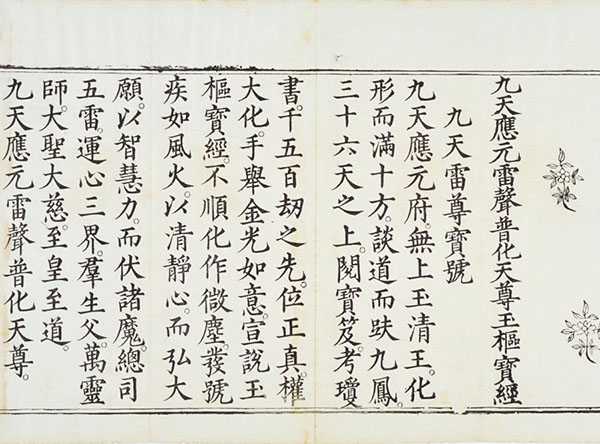 九天應元雷聲普化天尊玉樞寶經
九天雷尊寶號
九天應元府。無上玉清王。化
形而滿十方。談道而趺九鳳。
三十六天之上。閱寶笈。考瓊
書。千五百刼之先。位正真。權
大化。手舉金光如意。宣說玉
樞寶經。不順化作微塵。發號
疾如風火。以清靜心。而弘大
願。以智慧力。而伏諸魔。總司
五雷。運心三界。羣生父。萬靈
師。大聖大慈。至皇至道。
九天應元雷聲普化天尊。